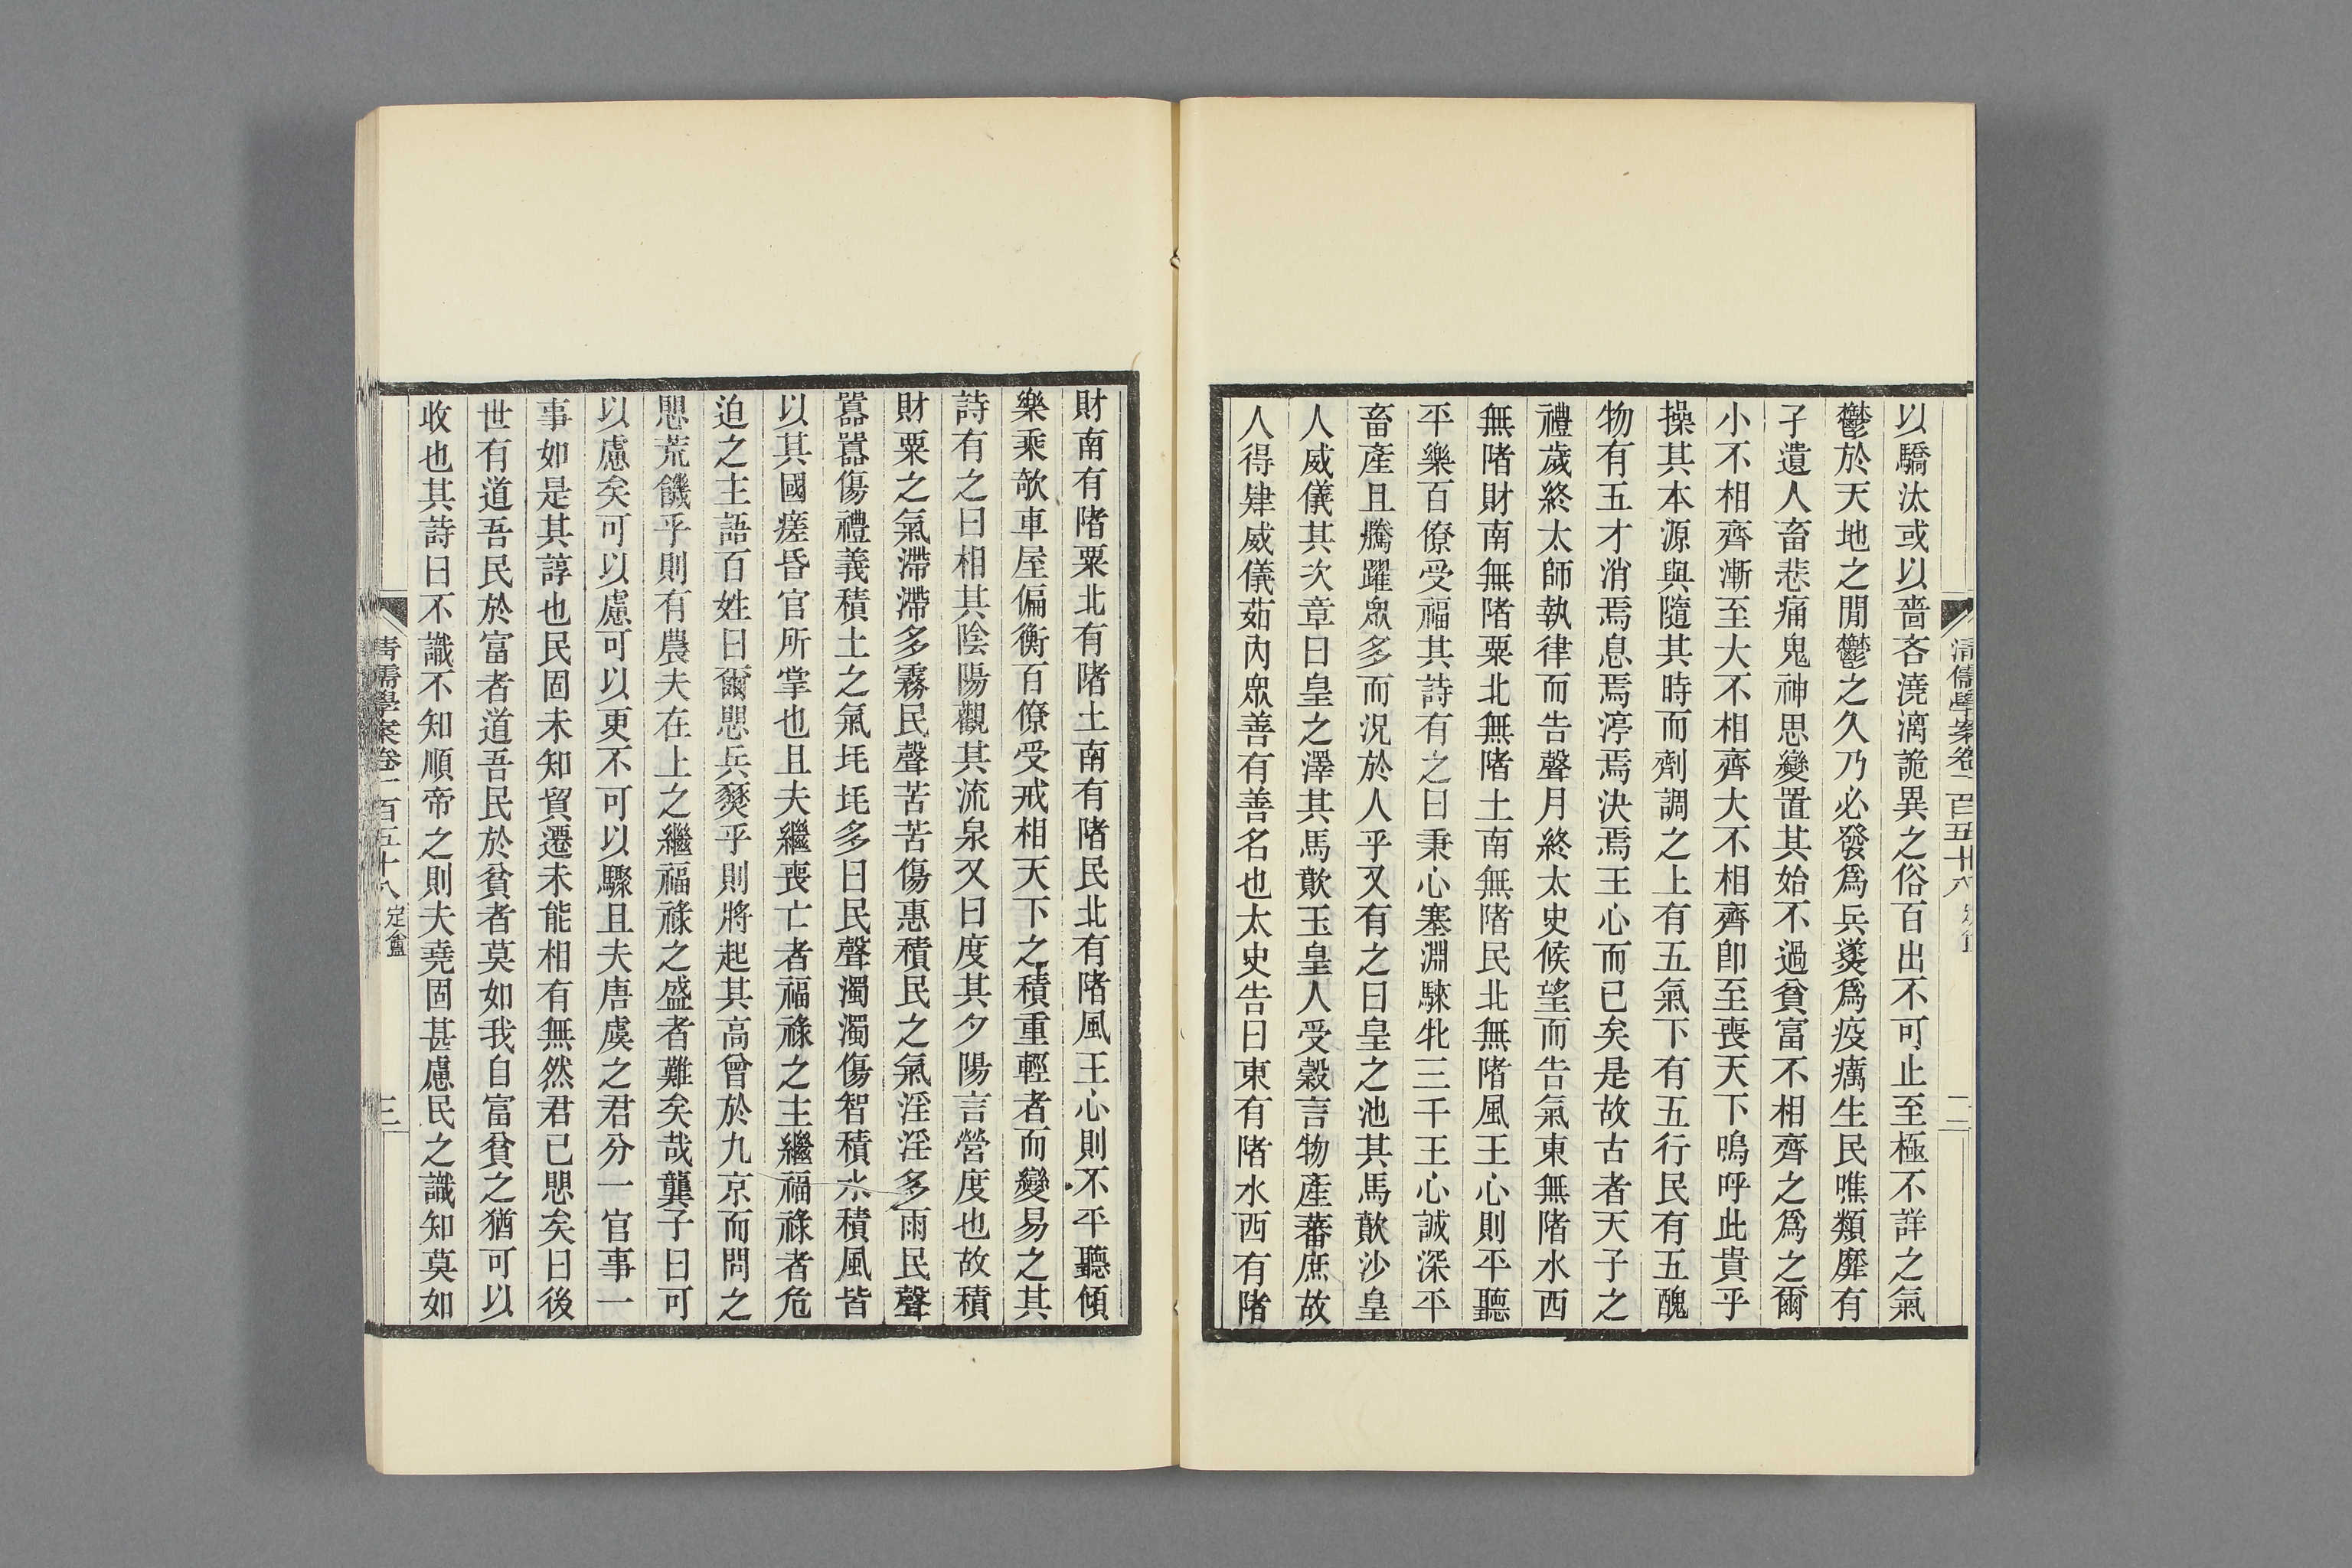 清儒學案卷一百五十八
二
以驕汰或以嗇吝澆漓詭異之俗百出不可止至極不詳之氣
鬱於天地之閒鬱之久乃必發爲兵燹爲疫癘生民噍類靡有
孑遺人畜悲痛鬼神思變置其始不過貧富不相齊之爲之爾
小不相齊漸至大不相齊大不相齊卽至喪天下嗚呼此貴乎
操其本源與隨其時而劑調之上有五氣下有五行民有五醜
物有五才消焉息焉渟焉決焉王心而已矣是故古者天子之
禮歲終太師執律而告聲月終太史候望而告氣東無陼水西
無陼財南無陼粟北無陼土南無陼民北無陼風王心則平聽
平樂百僚受福其詩有之曰秉心塞淵騋牝三千王心誠深平
畜產且騰躍眾多而況於人乎又有之曰皇之池其馬歕沙皇
人威儀其次章曰皇之澤其馬歕玉皇人受榖言物產蕃庶故
人得肄威儀茹內眾善有善名也太史告曰東有陼水西有陼
財南有陼粟北有陼土南有陼民北有陼風王心則不平聽傾
樂乘欹車屋偏衡百僚受戒相天下之積重輕者而變易之其
詩有之曰相其陰陽觀其流泉又曰度其夕陽言營度也故積
財粟之氣滯滯多霧民聲苦苦傷惠積民之氣淫淫多雨民聲
囂囂傷禮義積土之氣𡉏𡉏多日民聲濁濁傷智積水積風皆
以其國瘥昏官所掌也且夫繼喪亡者福祿之主繼福祿者危
迫之主語百姓曰爾愳兵燹乎則將起其高曾於九京而問之
愳荒饑乎則有農夫在上之繼福祿之盛者難矣哉龔子曰可
以慮矣可以慮可以更不可以驟且夫唐虞之君分一官事一
事如是其諄也民固未知貿遷未能相有無然君已愳矣曰後
世有道吾民於富者道吾民於貧者莫如我自富貧之猶可以
收也其詩曰不識不知順帝之則夫堯固甚慮民之識知莫如
清儒學案卷一百五十八 定盦
三